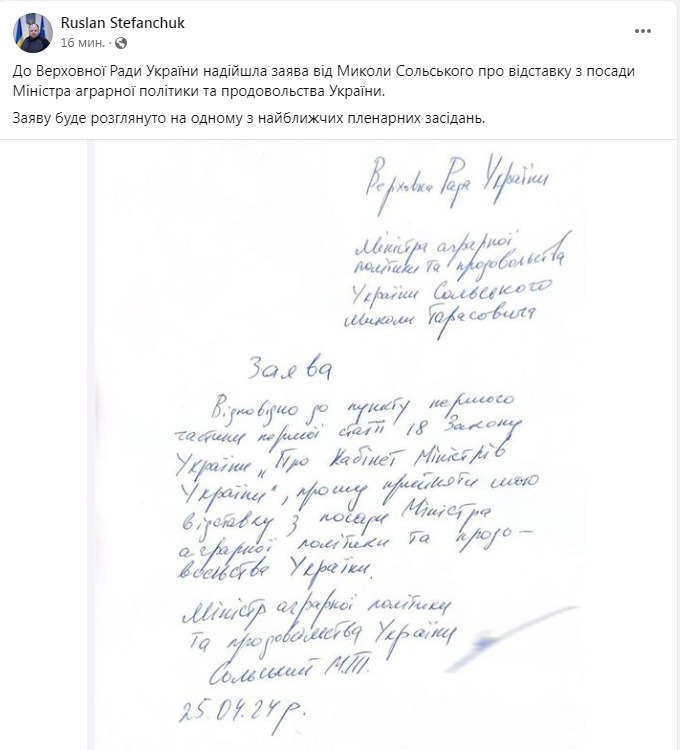 Ruslan Stefanchuk
16 мин. ·
До Верховної Ради України надійшла заява від Миколи Сольського про відставку з посади
Міністра аграрної політики та продовольства України.
Заяву буде розглянуто на одному з найближчих пленарних засідань.
Верховна Рада України
Міністра аграрної
політики та продовольства
України Сольського
Миколи Тарасовича
Заява
Відповідно до пункту першого
частини першої статті 18 Закону
України „Про Кабінет Міністрів
України“, прошу прийняти мою
відставку з посади Міністра
аграрної політики та продо-
вольства України.
Міністр аграрної політики
та продовольства України
Сольський М.Т.
25.04.24р.